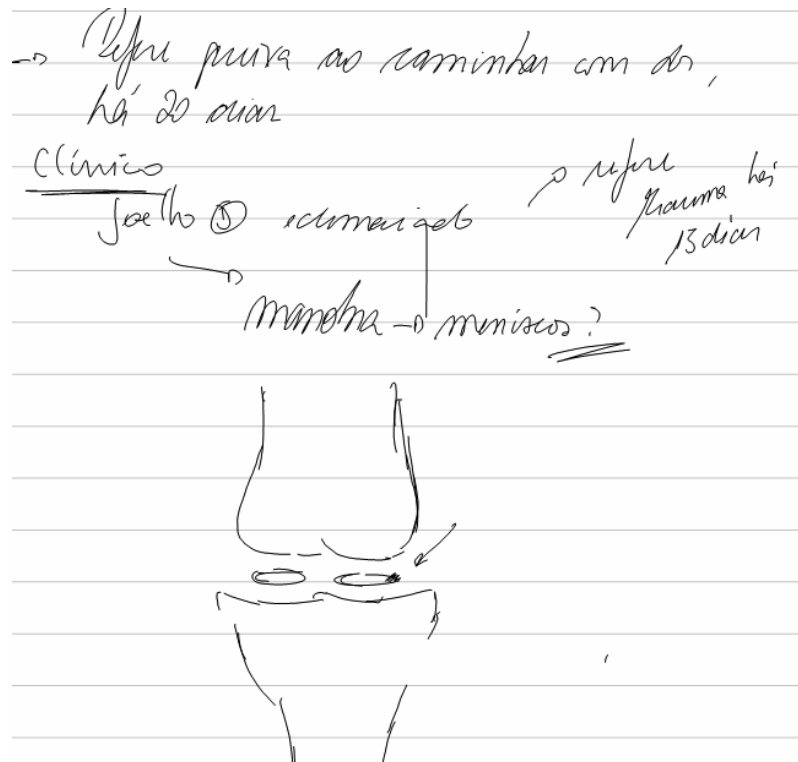 → Refere piora ao caminhar com dor,
há 20 dias
Clínico
Joelho D edemaciado
→ refere
trauma há
13 dias
→ manobra → meniscos?